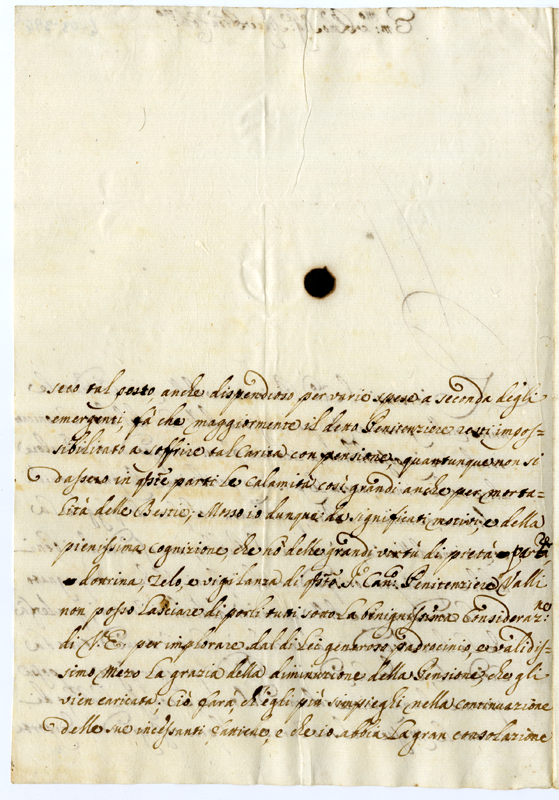 seco tal posto anche dispendioso per varie spese a seconda degli
emergenti, fà che maggiormente il detto Penitenziere resti impos=
sibilitato a soffrire tal Carità con pensione, quantunque non si
dassero in qste parti le Calamità così grandi anche per morta=
lità delle Bestie; Mosso io dunque da significati motivi, e della
pienissima cognizione che hò delle grandi virtù di pietà
dottrina, Zelo, e vigilanza di qsto Sr. Can: Penitenziere Valli
non posso lasciare di porli tutti sotto la benignissima Consideraz:ne
di V.E. per implorare dal di Lei generoso Padrocinio, e validis=
simo Mezo la grazia della diminuzione della Pensione, che gli
vien caricata. Ciò farà ch'egli più s'impieghi nella continuazione
delle sue incessanti fatiche, e che io abbia la gran consolazione